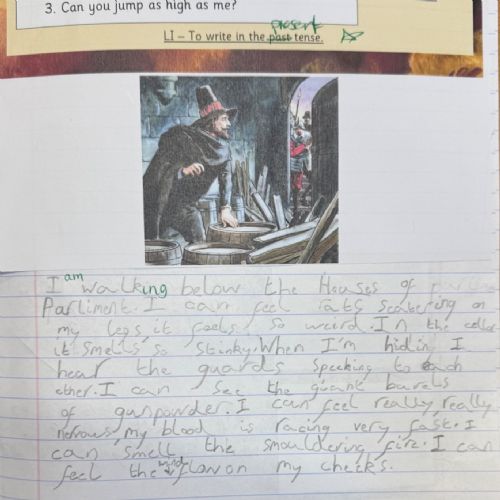 3. Can you jump as high as me?
present
LI – To write in the past tense.
I am walking below the Houses of
Parliment. I can feel rats scatering on
my legs, it feels so weird. In the celler
it smells so stinky. When I'm hidin I
hear the guards speeking to each
other. I can see the giant barels
of gunpowder. I can feel really, really
nervous, my blood is racing very fast. I
can smell the smouldering fire. I can
feel the wind flow on my cheeks.